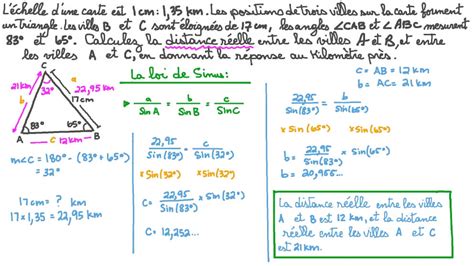 L'échelle d'une carte est 1cm : 1,35 km. Les positions de trois villes sur la carte forment
un triangle. Les villes B et C sont éloignées de 17cm, les angles ∠CAB et ∠ABC mesurent
83° et 65°. Calculez la distance réelle entre les villes A et B, et entre
les villes A et C, en donnant la réponse au kilomètre près.
C
21km
32°
a
22,95 km
b
17cm
83°
65°
A
c
12km
B
m∠C = 180° - (83°+65°)
= 32°
17cm = ? km
17 × 1,35 = 22,95 km
La loi de Sinus:
a/SinA = b/SinB = c/SinC
22,95/Sin(83°) = c/Sin(32°)
×Sin(32°) ×Sin(32°)
c = 22,95/Sin(83°) × Sin(32°)
c = 12,252...
c = AB = 12 km
b = AC = 21 km
22,95/Sin(83°) = b/Sin(65°)
×Sin(65°) ×Sin(65°)
b = 22,95/Sin(83°) × Sin(65°)
b = 20,955...
La distance réelle entre les villes
A et B est 12 km, et la distance
réelle entre les villes A et C
est 21km.